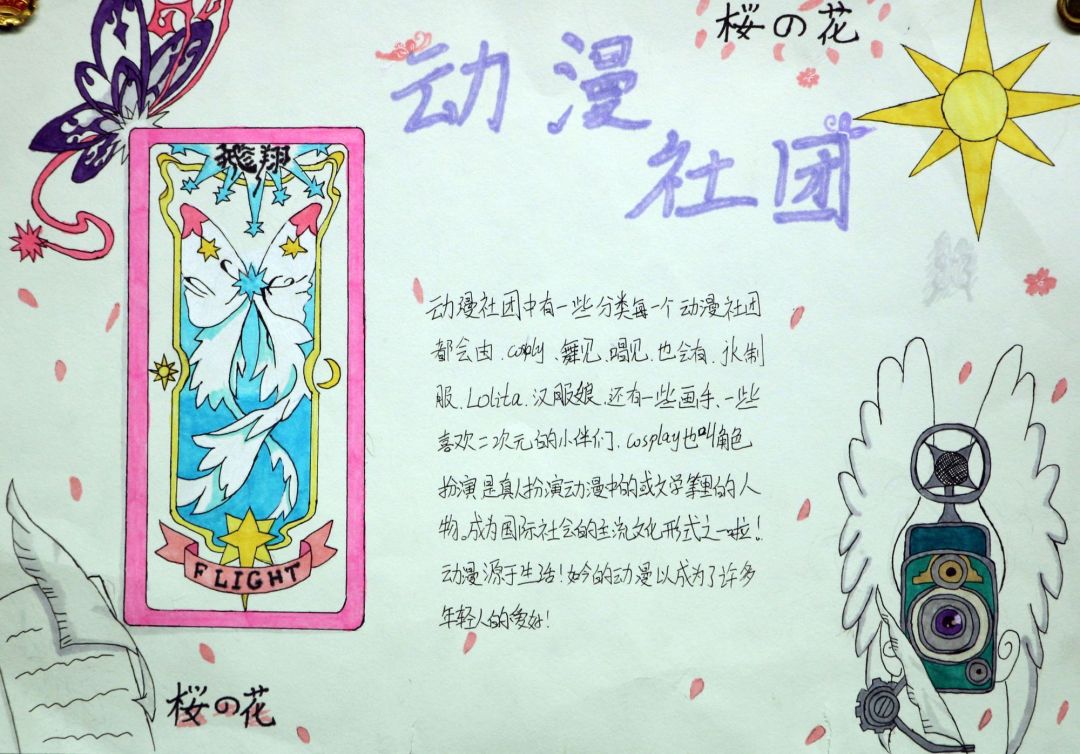 桜の花
动漫
社团
飛翔
FLIGHT
动漫社团中有一些分类每一个动漫社团
都会由、cosply、舞见、唱见、也会有、jk制
服、Lolita、汉服娘、还有一些画手、一些
喜欢二次元的小伴们、cosplay也叫角色
扮演是真人扮演动漫中的或文学笔里的人
物。成为国际社会的主流文化形式之一啦！
动漫源于生活！如今的动漫以成为了许多
年轻人的爱好！
桜の花